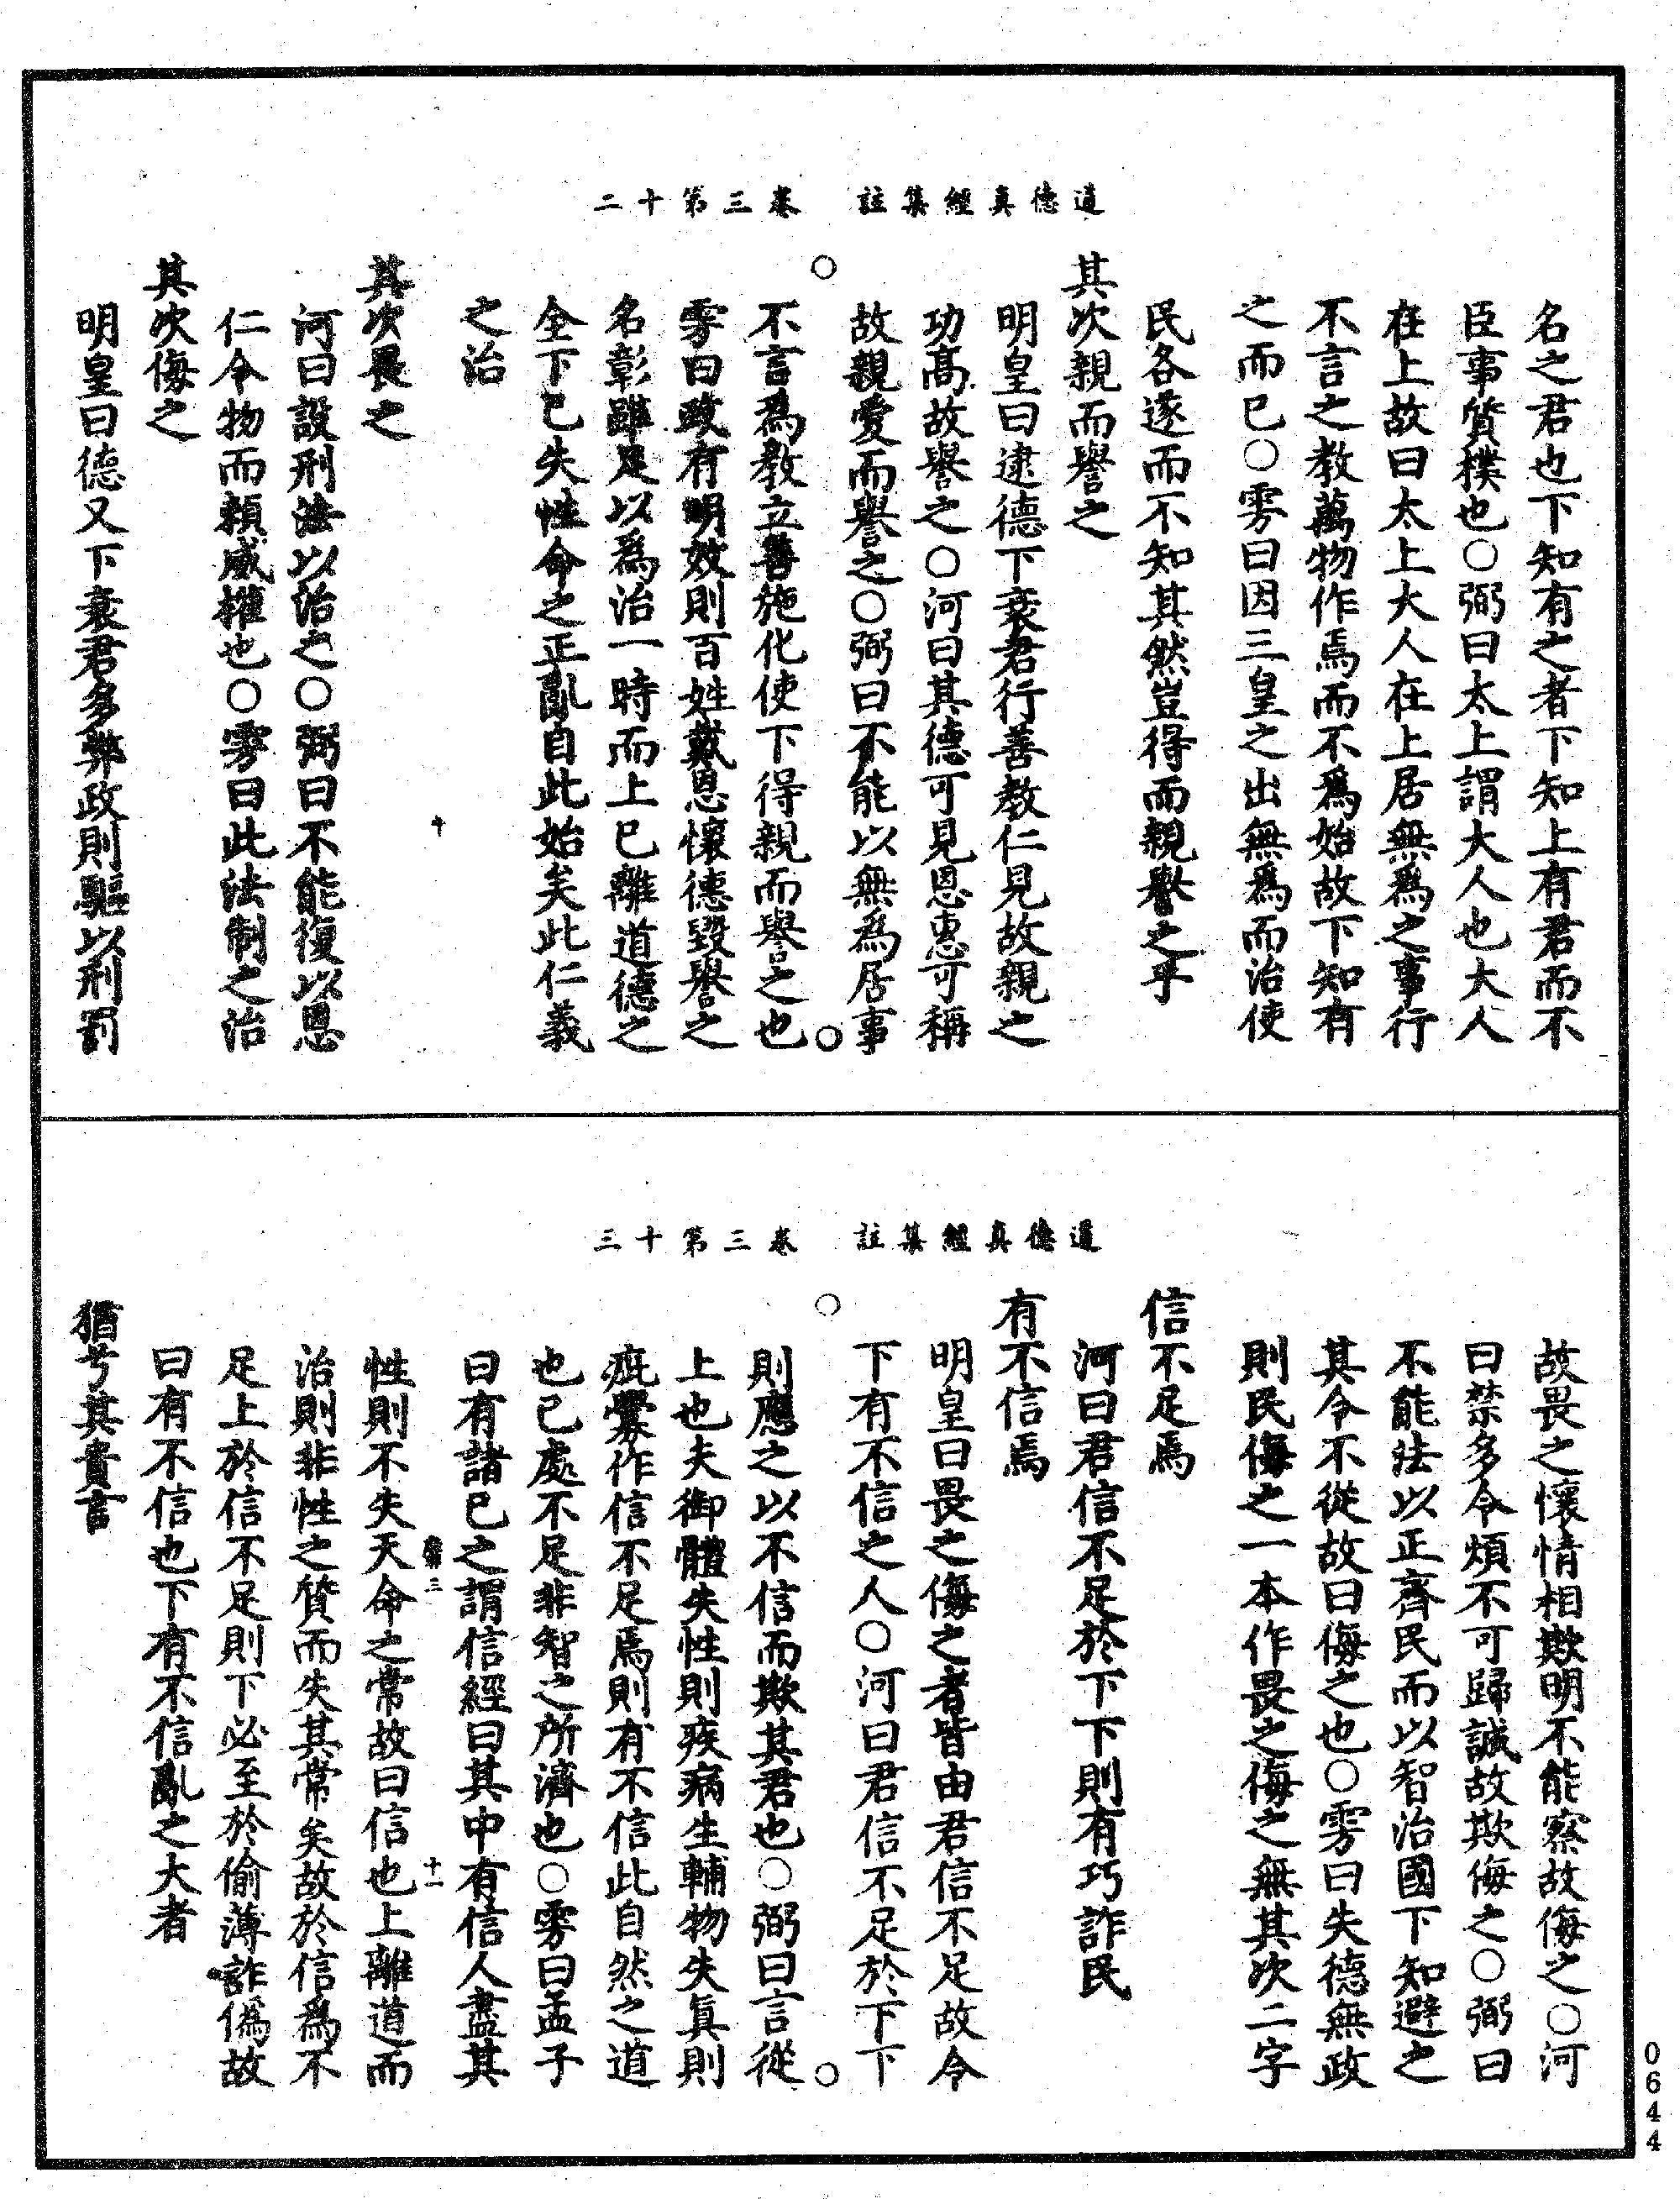 道德真經集註　卷三第十二
名之君也下知有之者下知上有君而不
臣事質樸也○弼曰太上謂大人也大人
在上故曰太上大人在上居無為之事行
不言之教萬物作焉而不為始故下知有
之而已○雱曰因三皇之出無為而治使
民各遂而不知其然豈得而親譽之乎
其次親而譽之
明皇曰逮德下衰君行善教仁見故親之
功高故譽之○河曰其德可見恩惠可稱
故親愛而譽之○弼曰不能以無為居事
不言為教立善施化使下得親而譽之也
雱曰政有明效則百姓戴恩懷德毀譽之
名彰雖足以為治一時而上已離道德之
全下已失性命之正亂自此始矣此仁義
之治
十
其次畏之
河曰設刑法以治之○弼曰不能復以恩
仁令物而賴威權也○雱曰此法制之治
其次侮之
明皇曰德又下衰君多弊政則驅以刑罰
道德真經集註　卷三第十三
故畏之懷情相欺明不能察故侮之○河
曰禁多令煩不可歸誠故欺侮之○弼曰
不能法以正齊民而以智治國下知避之
其令不從故曰侮之也○雱曰失德無政
則民侮之一本作畏之侮之無其次二字
信不足焉
河曰君信不足於下下則有巧詐民
有不信焉
明皇曰畏之侮之者皆由君信不足故令
下有不信之人○河曰君信不足於下下
則應之以不信而欺其君也○弼曰言從
上也夫御體失性則疾病生輔物失真則
疵釁作信不足焉則有不信此自然之道
也已處不足非智之所濟也○雱曰孟子
曰有諸已之謂信經曰其中有信人盡其
十一
性則不失天命之常故曰信也上離道而
治則非性之質而失其常矣故於信為不
足上於信不足則下必至於偷薄詐偽故
曰有不信也下有不信亂之大者
猶兮其貴言
0644